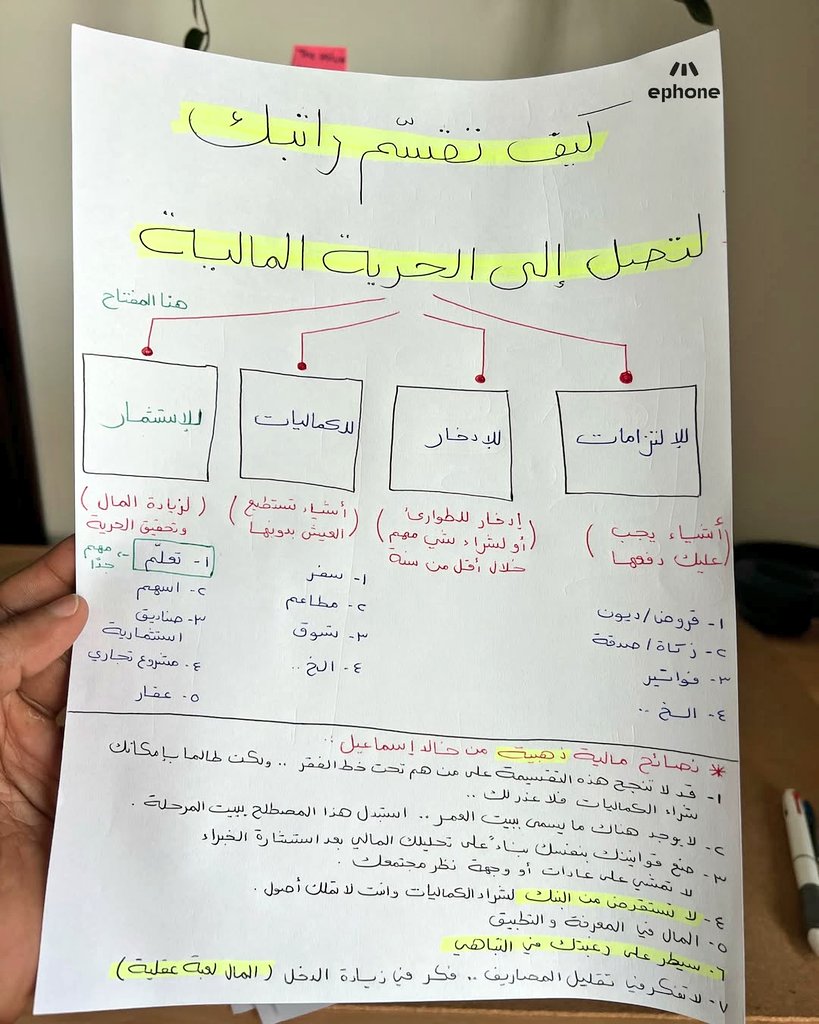 ephone
كيف تقسّم راتبك
لتصل إلى الحرية المالية
هنا المفتاح
للإلتزامات
للإدخار
للكماليات
للإستثمار
(أشياء يجب
عليك دفعها)
١- قروض/ديون
٢- زكاة/صدقة
٣- فواتير
٤- الخ ..
(إدخار للطوارئ
أو لشراء شي مهم
خلال أقل من سنة)
(أشياء تستطيع
العيش بدونها)
١- سفر
٢- مطاعم
٣- تسوق
٤- الخ ..
(لزيادة المال
وتحقيق الحرية)
١- تعلّم
مهم
جدًا
٢- اسهم
٣- صناديق
استثمارية
٤- مشروع تجاري
٥- عقار
* نصائح مالية ذهبية من خالد إسماعيل :
١- قد لا تنجح هذه التقسيمة على من هم تحت خط الفقر .. ولكن طالما بإمكانك
شراء الكماليات فلا عذر لك ..
٢- لا يوجد هناك ما يسمى ببيت العمر .. استبدل هذا المصطلح ببيت المرحلة .
٣- ضع قوانينك بنفسك بناءً على تحليلك المالي بعد استشارة الخبراء
لا تمشي على عادات أو وجهة نظر مجتمعك .
٤- لا تستقرض من البنك لشراء الكماليات وانت لا تملك أصول .
٥- المال في المعرفة و التطبيق
٦- سيطر على رغبتك في التباهي
٧- لا تفكر في تقليل المصاريف .. فكر في زيادة الدخل (المال لعبة عقلية)